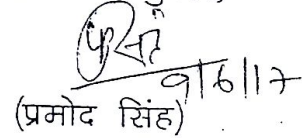 9/6/17
(प्रमोद सिंह)